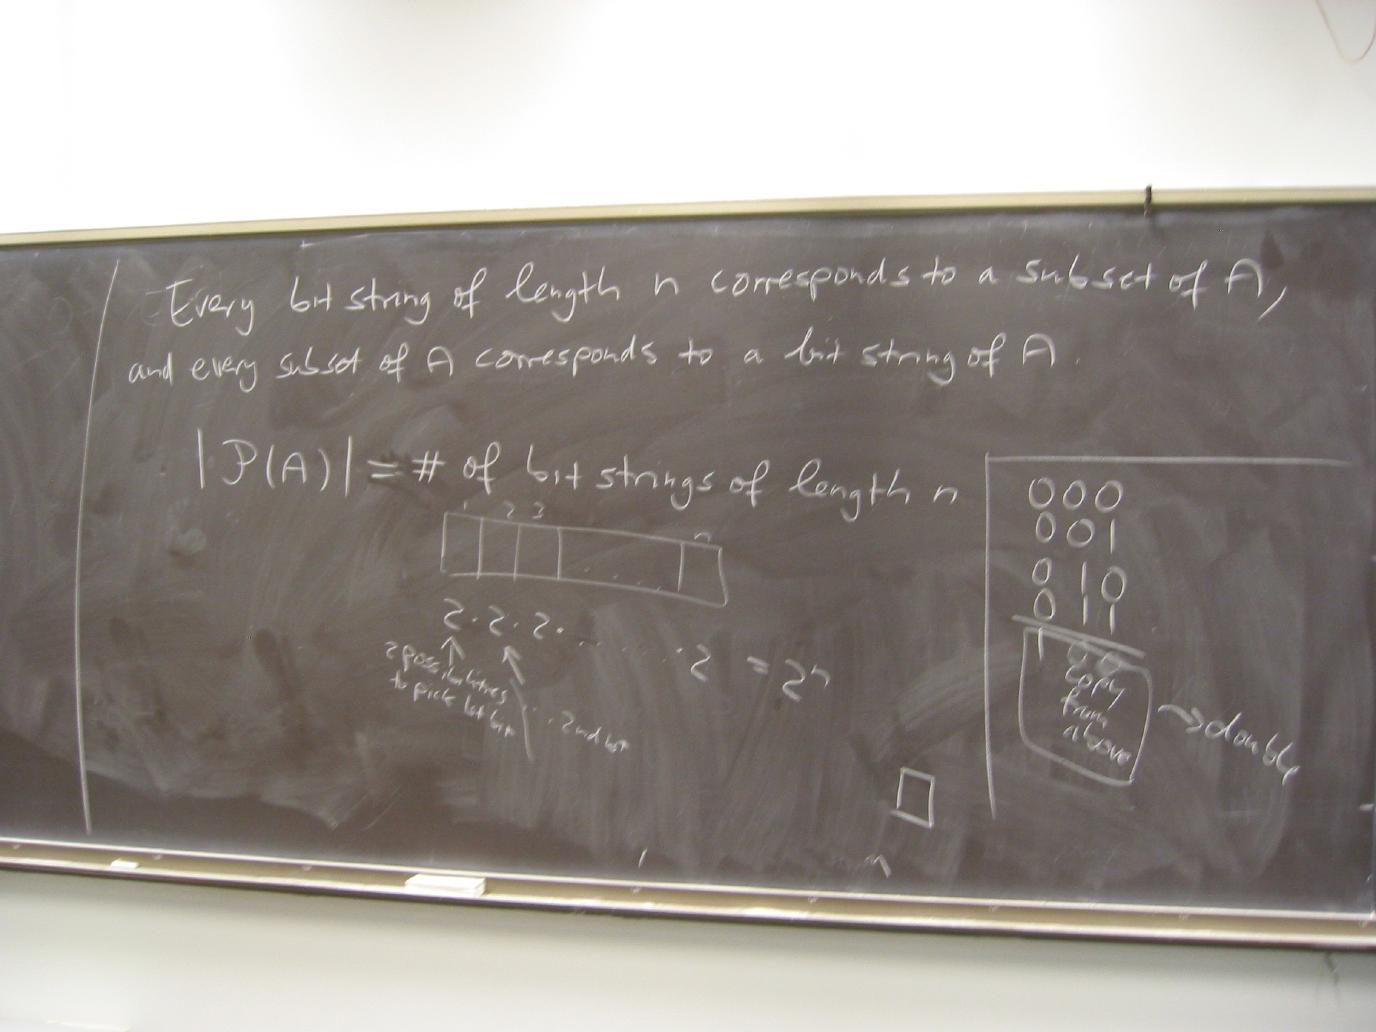 Every bit string of length n corresponds to a subset of A,
and every subset of A corresponds to a bit string of A.
|P(A)| = # of bit strings of length n
1 2 3 n
. . . .
2 · 2 · 2 · . . . . 2 = 2ⁿ
2 possibilities
to pick 1st bit
. . . 2nd bit
000
001
010
011
1 00
copy
from
above
→ double